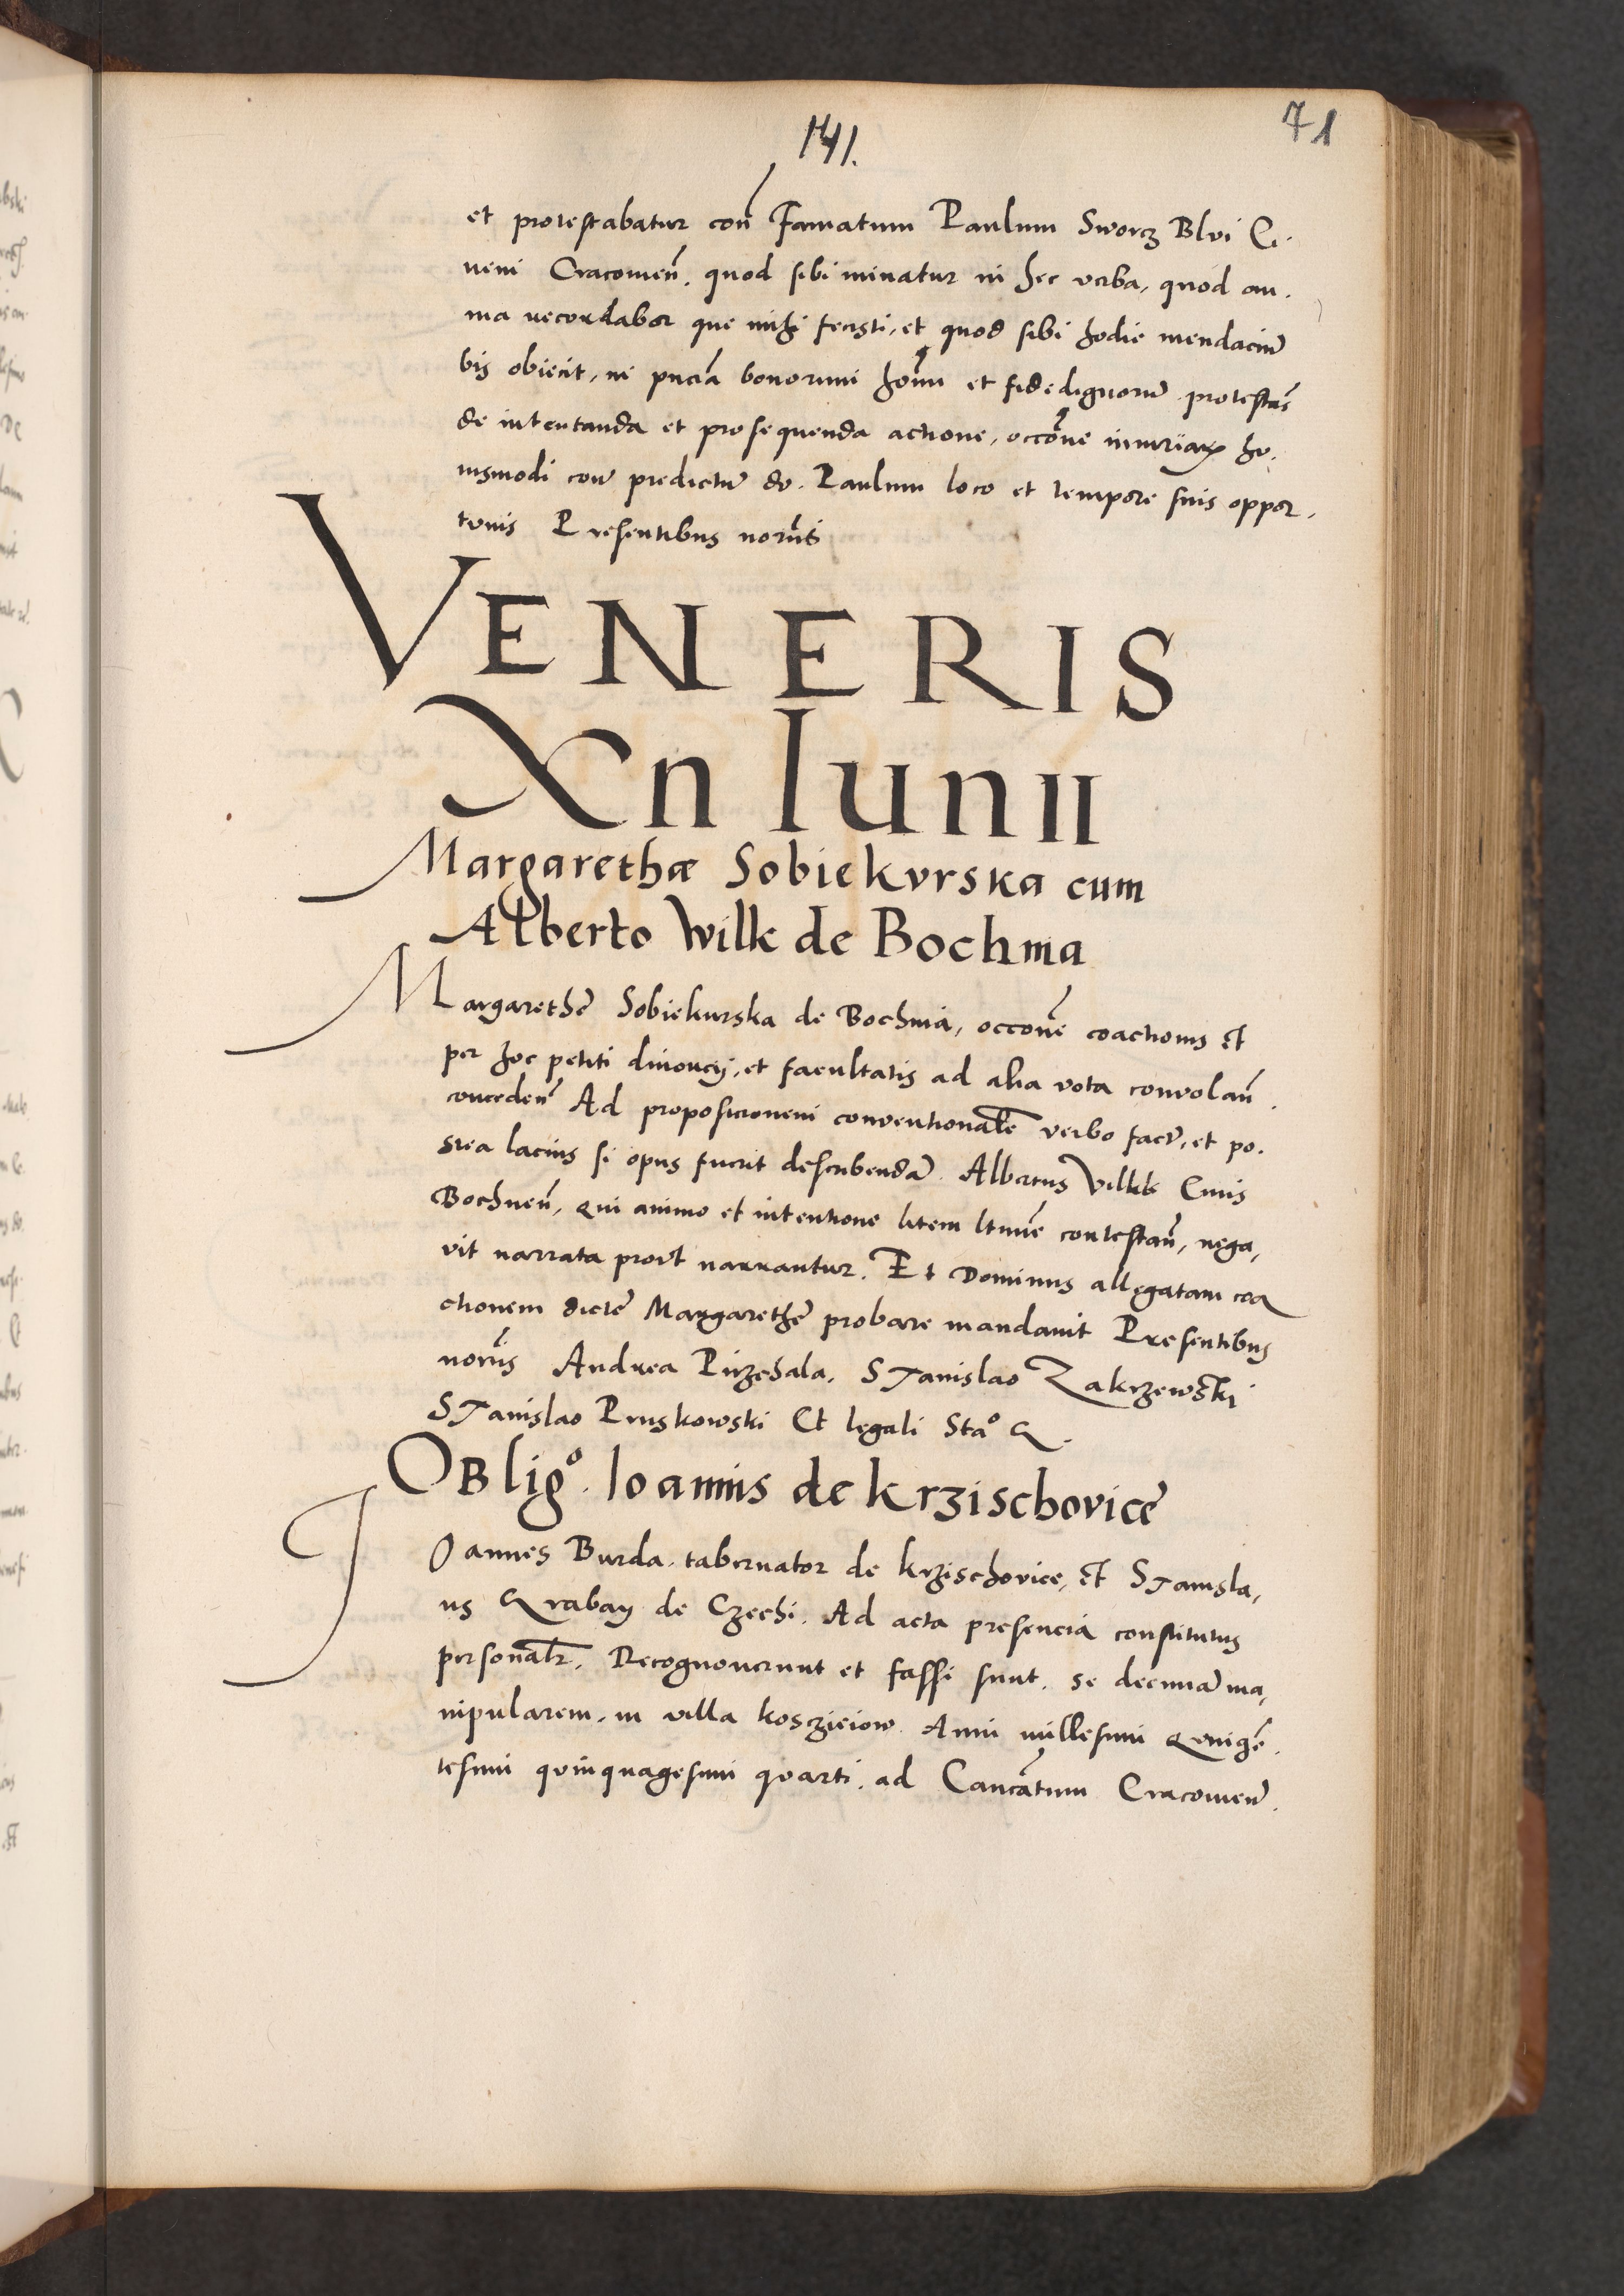 71
141.
et protestabatur con̄ Famatum Paulum Sworcz Blvi Ci.
uem Cracouień. quod sibi minatur in hec verba, quod an.
ma recordabor que mihi fecisti, et quod sibi hodie mendaciū
bis obiecit, in pn̄cia bonorum hom̄ et fidedignorū protestań
de intentanda et prosequenda actione, occōne iniuriaꝝ hu.
iusmodi con̄ predictū do. Paulum loco et tempore suis oppor.
tunis Presentibus notariis
VENERIS
Xn IunII
Margarethæ Sobiekvrska cum
Alberto Wilk de Bochnia
Margarethę Sobiekurska de Bochnia, occōne coactionis et
per hoc petiti diuorcij, et facultatis ad alia vota convolań.
conceden̄ Ad proposicionem conventionalē verbo factā, et po.
stea lacius si opus fuerit describendā Albertus Vilk Ciuis
Bochneń. qui animo et intentione litem ltīme contestań, nega,
vit narrata provt narrantur. Et Dominus allegatam coa
ctionem dictę Margarethę probare mandauit Presentibus
Andrea Przechala. STanislao Zakrzewski
STanislao Pruskowski Et legali Stā°
OBlig°. Ioannis de krzischovice
IOannes Burda. tabernator de krzischovice, et STanisla,
us Grabay de Czechi. Ad acta presencia constitutus
personalr̄. Recognouerunt et fassi sunt. se decimā ma,
nipularem. in villa kosczieiow Anni millesimi qvingē.
tesimi qvinquagesimi qvarti. ad Cantōatum Cracouień.